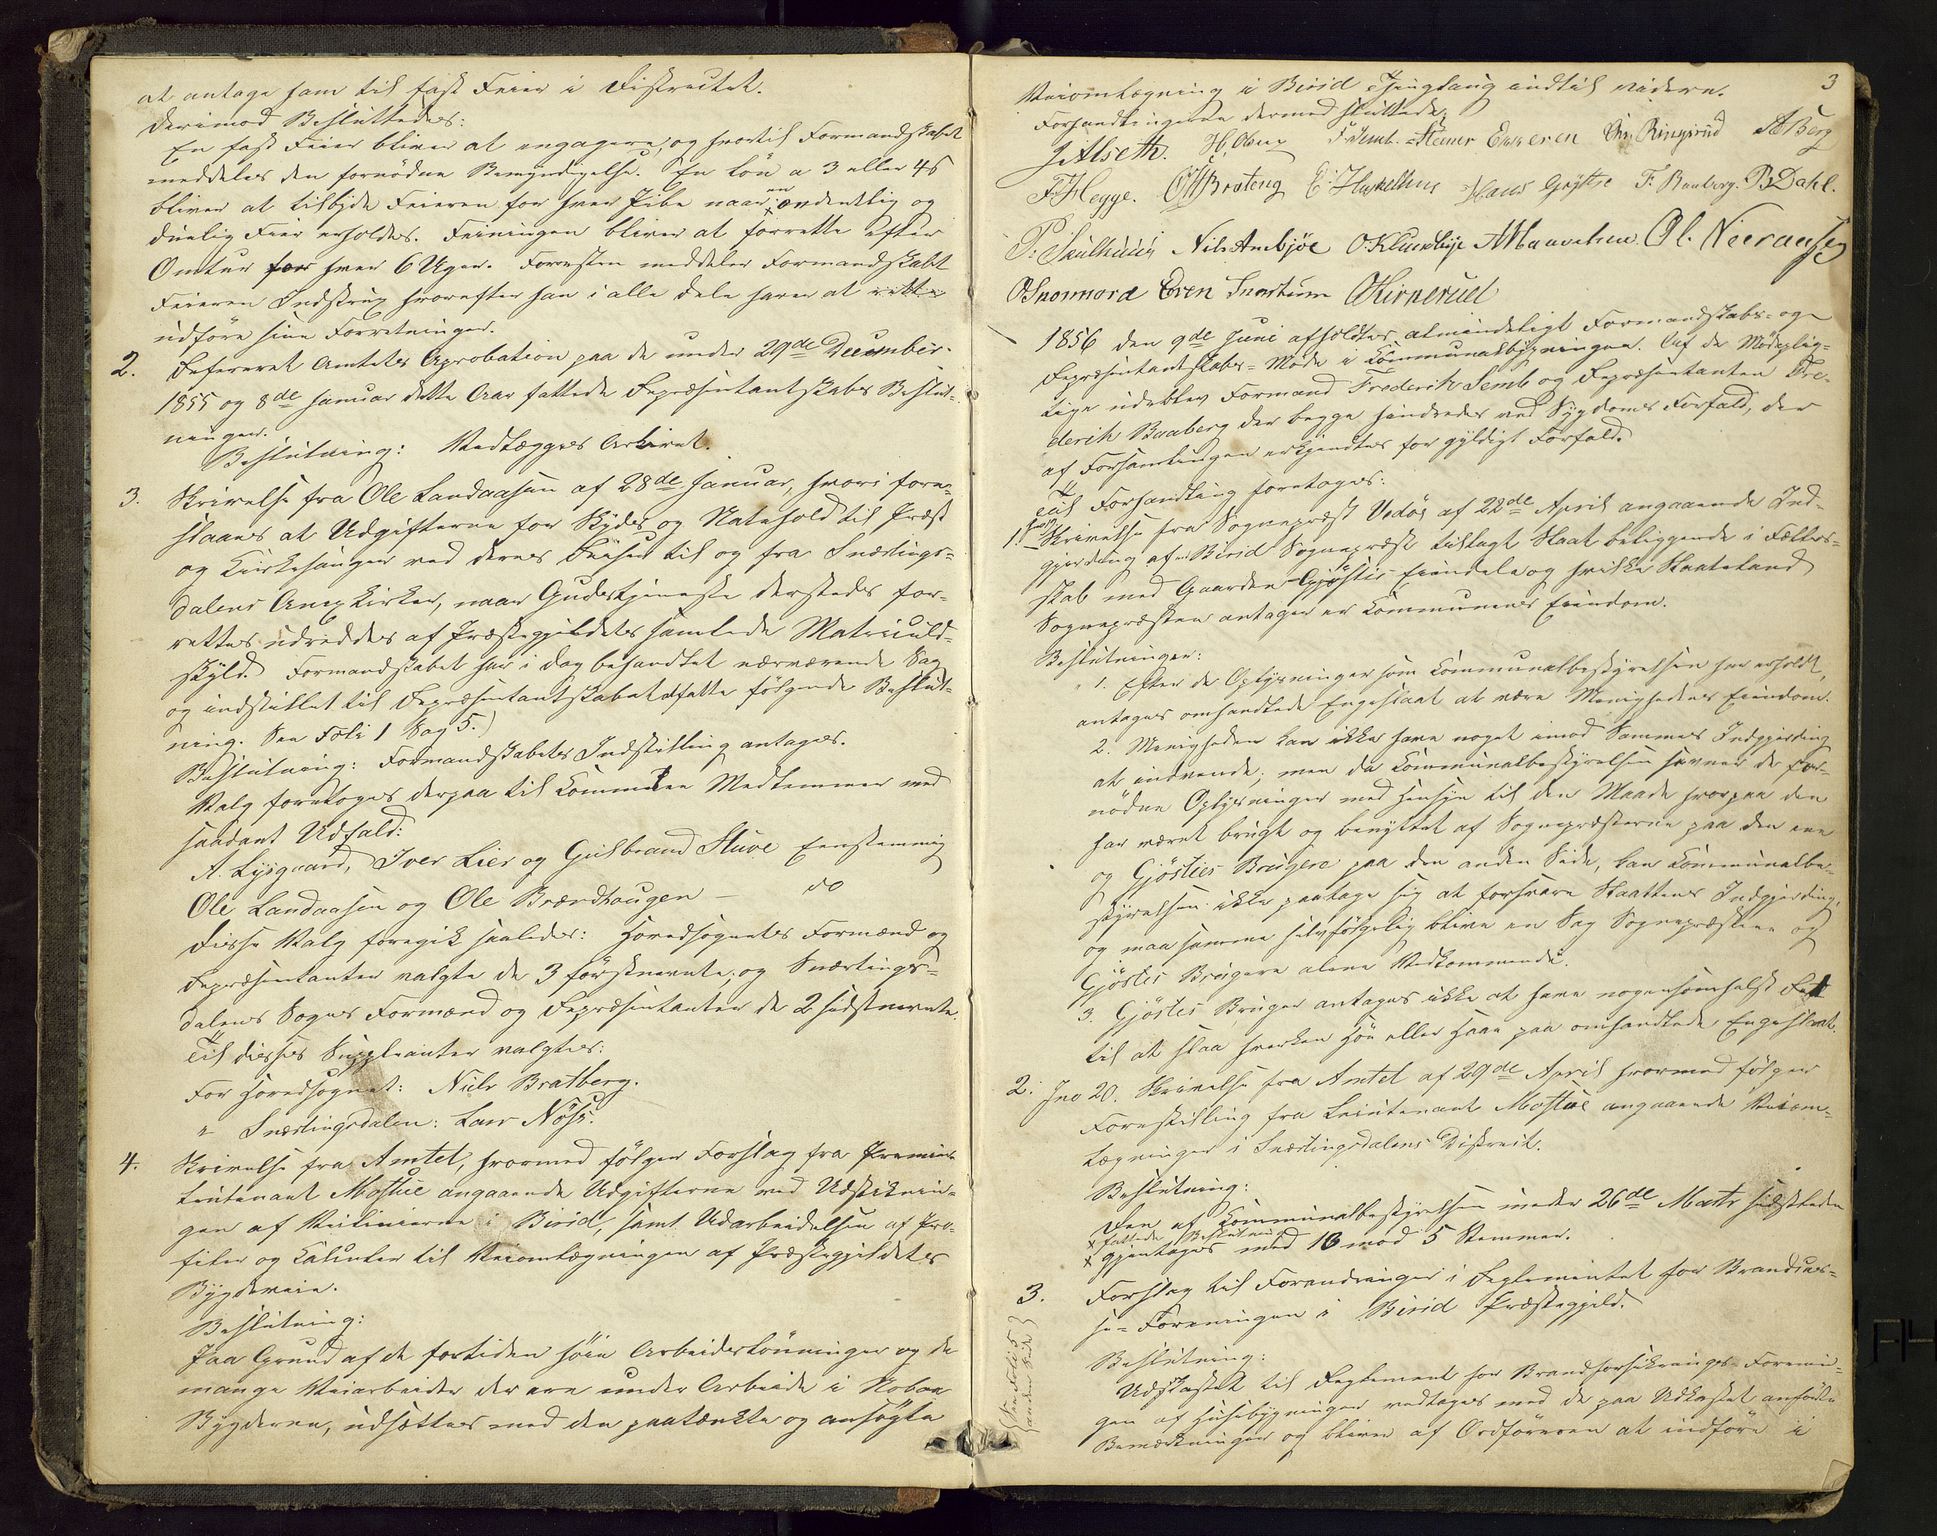 at antage ham til fast Feier i Districtet.
Derimod Besluttedes:
En fast Feier bliver at engagere, og hvortil Formandskabet
meddeles den fornødne Bemyndigelse. En Løn a 3 eller 4 s
bliver at tilbyde Feieren for hver Pibe naar en ordentlig og
duelig Feier erholdes. Feiningen bliver at forrette efter
Omtur hver 6 Uger. Forresten meddeler Formandskabet
Feieren Indstrux hvorefter han i alle dele haver at
udføre sine Forretninger.
2. Refereret Amtets Aprobation paa de under 29de December
1855 og 8de Januar dette Aar fattede Repræsentantskabs Beslut-
ninger.
Beslutning: Vedlægges Arkivet.
3. Skrivelse fra Ole Landaasen af 28de Januar, hvori fore-
slaaes at Udgifterne for Skyds og Natehold til Præst
og Kirkesanger ved deres Reiser til og fra Snertings-
dalens Anexkirke, naar Gudstjeneste dersteds for-
rettes udreddes af Præstegjeldets samlede Matriculs-
skyld. Formandskabet har i Dag behandlet nærværende Sag
og indstillet til Repræsentantskabet at fatte følgende Beslut-
ning. See Foli 1 Sag 5.)
Beslutning: Formandskabets Indstilling antages.
Valg foretoges derpaa til Committee Medlemmer med
saadant Udfald:
A. Lysgaard, Iver Lier og Gulbrand Stuve Eenstemmig
Ole Landaasen og Ole Brændhaugen — do
Disse Valg foregik saaledes: Hovedsognets Formænd og
Repræsentanter valgte de 3 førstnevnte, og Snertings-
dalens Sogns Formænd og Repræsentanter de 2 sidstnevnte.
Til disses Suppleanter valgtes:
For Hovedsognet: Niels Bratberg.
" Snertingsdalen: Lars Nøss.
4. Skrivelse fra Amtet, hvormed følger Forslag fra Premier
Leutenant Mostue angaaende Udgifterne ved Udstiknin-
gen af Veilinierne i Birid, samt Udarbeidelsen af Pro-
filer og Calculer til Veiomlægningen af Præstegjeldets
Bygdeveie.
Beslutning:
Paa Grund af de fortiden høie Arbeidslønninger og de
mange Veiarbeider der ere under Arbeide i Nabo
Bygderne, udsættes med den paatænkte og ansøgte
3
Veiomlægning i Birid Thinglaug indtil videre.
Forhandlingerne dermed sluttede.
J Alseth. H. Oberg F Semb. Stener Eggeren Chr Ringsrud A Berg
F. Hegge. O Brateng E Haskelhus Hans Grytte F. Baaberg. B Dahl.
P. Skulhuus Nils Ambjør O Klundbye A Maurhun Ol. Neeraasen
O Snormord Even Snortum O Kirkerud
1856 den 9de Juni afholdtes almindeligt Formandskabs- og
Repræsentantskabs-Møde i Communalbygningen. Af de Mødeplig-
tige udeblev Formand Frederik Semb og Repræsentanten Fre-
derik Baaberg der begge hindredes ved Sygdoms Forfald, der
af Forsamlingen erkjendtes for gyldigt Forfald.
Til Forhandling foretoges:
1. Skrivelse fra Sognepræst Vedøs af 22de April angaaende Ind-
gjerding af Birid Sognepræst tillagt Slaat beliggende i Fælles-
skab med Gaarden Gjøstis Eiendele og hvilke Slaateland
Sognepræsten antager er Communens Eiendom.
Beslutninger:
1. Efter de Oplysninger som Communalbestyrelsen har erholdt,
antages omhandlede Engeslaat at være Menighedens Eiendom.
2. Menigheden kan ikke have noget imod Sammes Indgjerding
at indvende, men da Communalbestyrelsen savner de for-
nødne Oplysninger med Hensyn til den Maade hvorpaa den
har været brugt og benyttet af Sognepræsterne paa den ene
og Gjøsties Brugere paa den anden Side, kan Communalbe-
styrelsen ikke paatage sig at forsvare Slaattens Indgjerding,
og maa samme selvfølgelig blive en Sag Sognepræsten og
Gjøsties Brugere alene Vedkommende.
3. Gjøsties Bruger antages ikke at have nogensomhelst Ret
til at slaa hverken Høe eller Havn paa omhandlede Engeslaat.
2. Jno 20. Skrivelse fra Amtet af 29de April hvormed følger
Forestilling fra Leutenant Mostue angaaende Veiom-
lægninger i Snertingsdalens District.
Beslutning:
Den af Communalbestyrelsen under 26de Marts sidstleden
fattede Beslutning
gjentages med 16 mod 5 Stemmer.
3. Forslag til Forandringer i Reglementet for Brandcas-
se-Foreningen i Birid Præstegjeld.
(See Folio 5
anden Side)
Beslutning:
Udkastet til Reglement for Brandforsikrings-Forenin-
gen af Huusbygninger vedtages med de paa Udkastet anførte
Bemærkninger og bliver af Ordføreren at indføre i